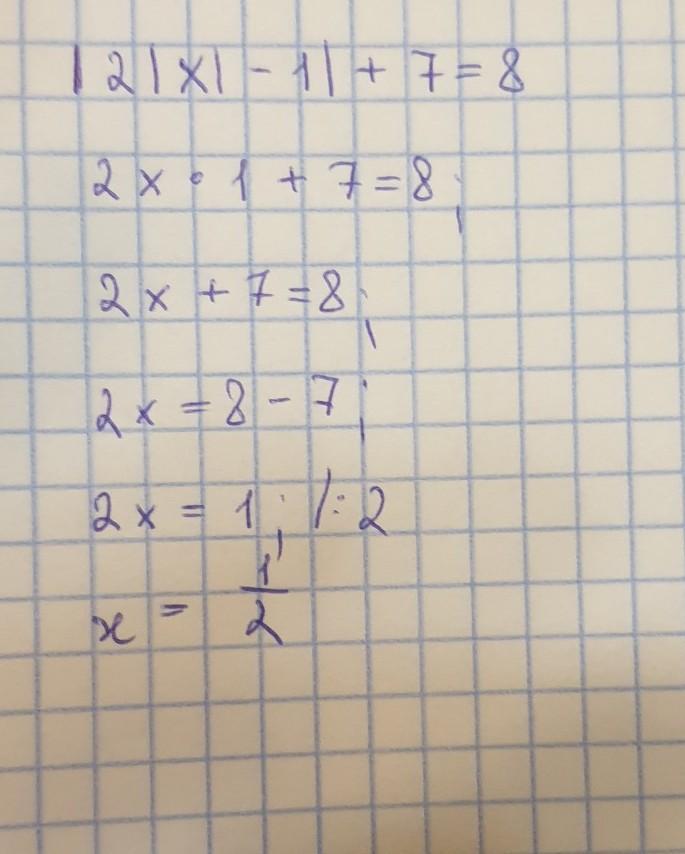 |2|x| - 1| + 7 = 8
2x • 1 + 7 = 8;
2x + 7 = 8;
2x = 8 - 7;
2x = 1; /: 2
x = 1/2